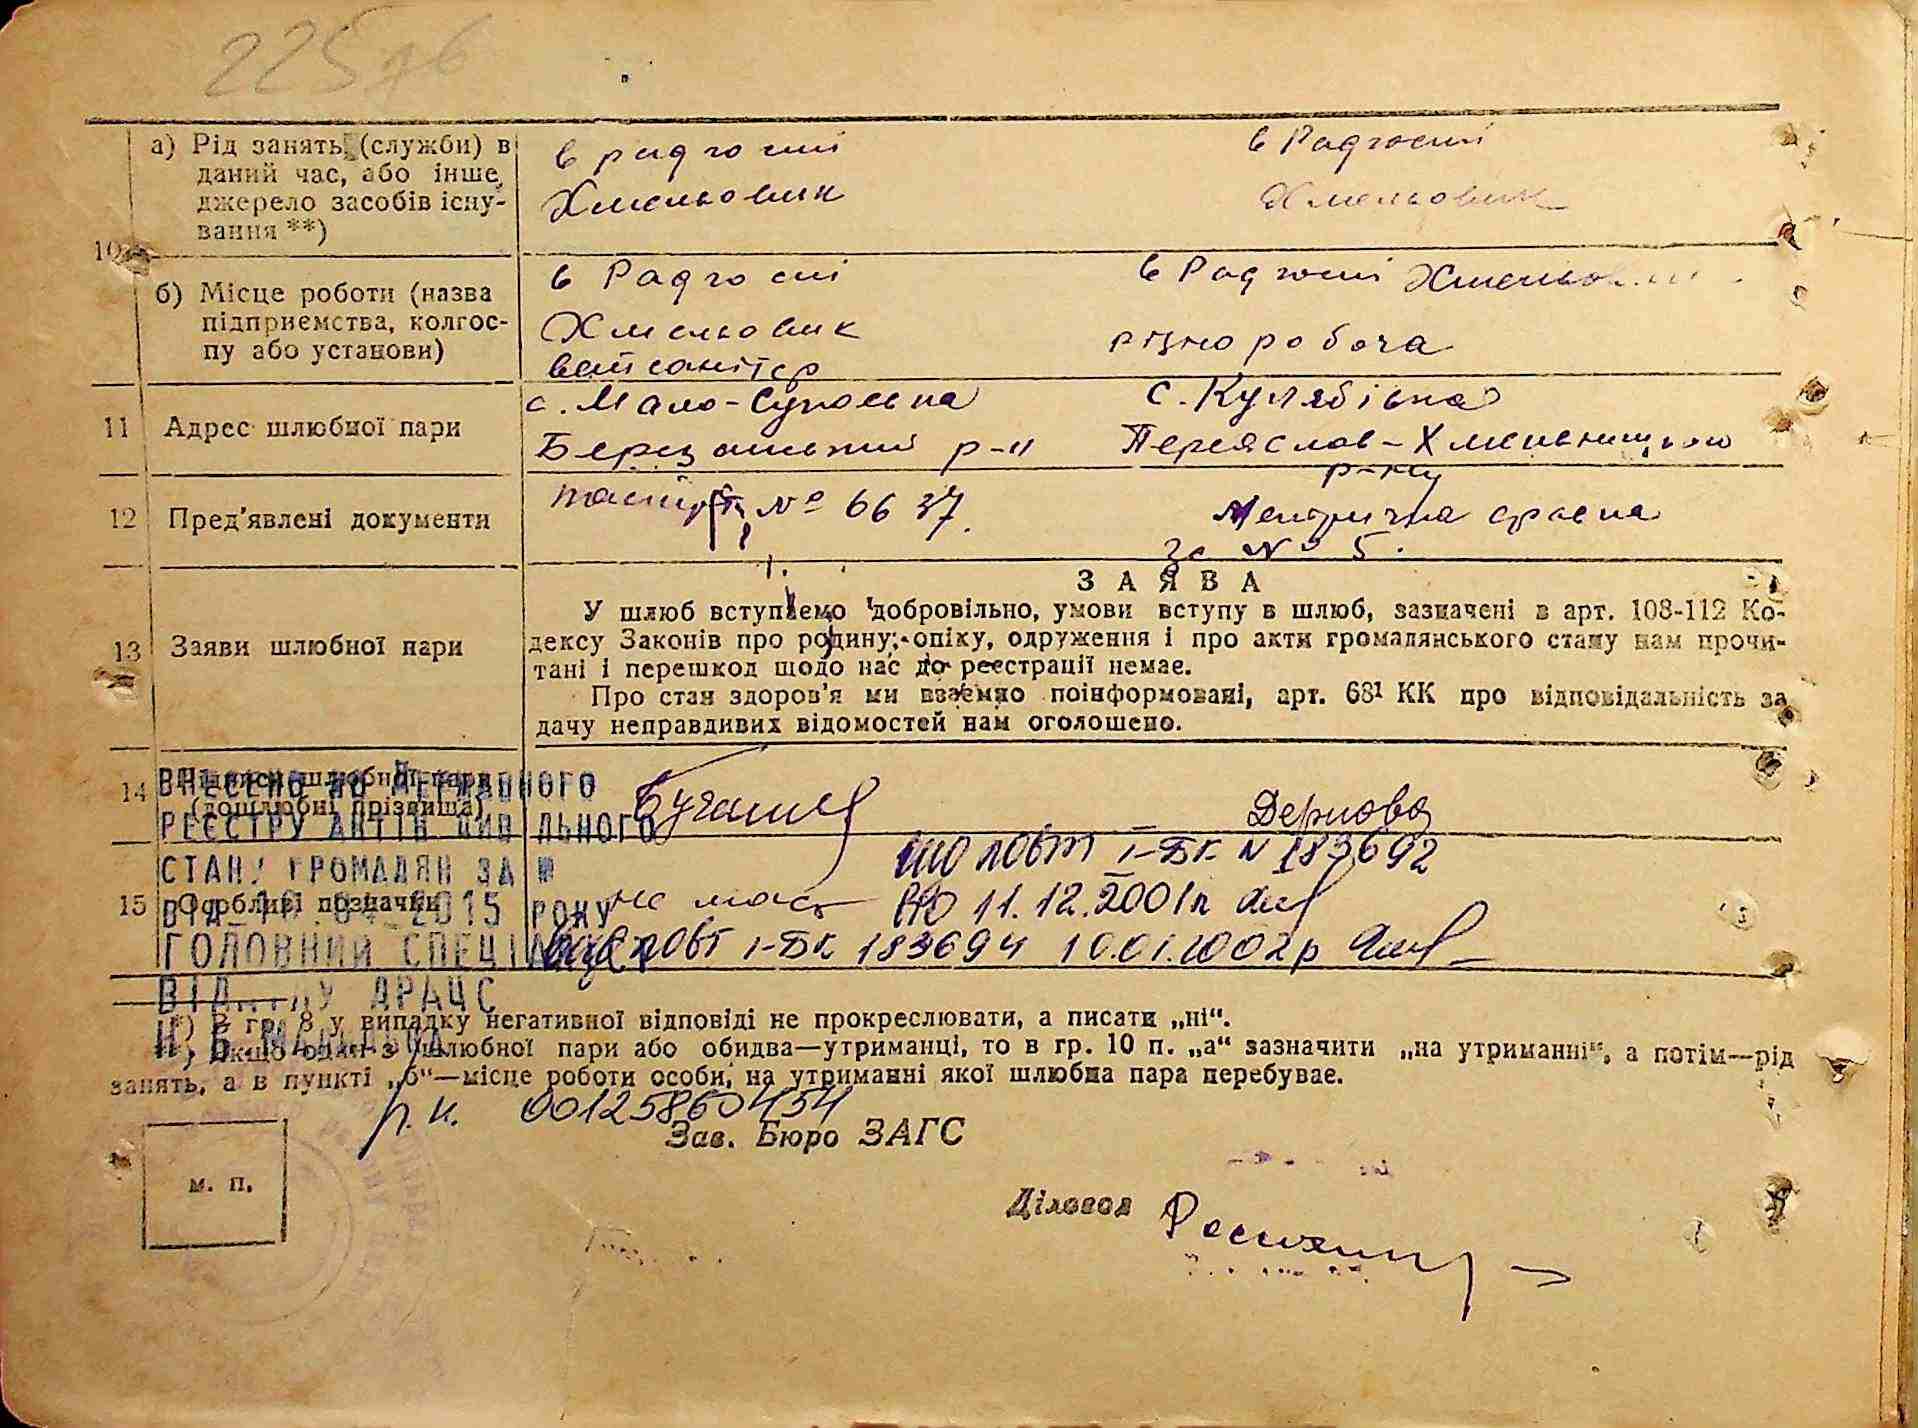 225
а) Рід занять (служби) в даний час, або інше джерело засобів існу-вання **)
в радгоспі
Хмельовик
в Радгоспі
Хмельовик
10
б) Місце роботи (назва підприємства, колгос-пу або установи)
в Радгоспі
Хмельовик
ветсанітар
в Радгоспі
різноробоча
11 Адрес шлюбної пари
с. Мало-Супоєвка
Березанський р-н
с. Кулябівка
Переяслав-Хмельницького
р-ну
12 Пред'явлені документи
паспорт № 6637.
Метрична справка
за № 5.
13 Заяви шлюбної пари
ЗАЯВА
У шлюб вступаємо добровільно, умови вступу в шлюб, зазначені в арт. 108-112 Ко-
дексу Законів про родину, опіку, одруження і про акти громадянського стану нам прочи-
тані і перешкод щодо нас до реєстрації немає.
Про стан здоров'я ми взаємно поінформовані, арт. 68¹ КК про відповідальність за
дачу неправдивих відомостей нам оголошено.
14 Підписи шлюбної пари
(дошлюбні прізвища)
Дернова
ВНЕСЕНО ДО ДЕРЖАВНОГО
РЕЄСТРУ АКТІВ ЦИВІЛЬНОГО
СТАНУ ГРОМАДЯН ЗА №
15 Особливі позначки
не має
повт І-БК N 183692
11.12.2001р
ВІД 2015 РОКУ
ГОЛОВНИЙ СПЕЦІАЛІСТ
повт І-БК 183694 10.01.2002р
ВІДДІЛУ ДРАЦС
*) В гр. 8 у випадку негативної відповіді не прокреслювати, а писати „ні“.
**) Якщо один з шлюбної пари або обидва—утриманці, то в гр. 10 п. „а“ зазначити „на утриманні“, а потім—рід
занять, а в пункті „б“—місце роботи особи, на утриманні якої шлюбна пара перебуває.
р.н. 00125860454
Зав. Бюро ЗАГС
м. п.
Діловод